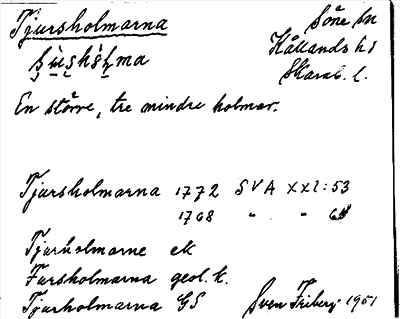 Tjursholmarna Söne sn
Kållands hd
Skarab. l.
En större, tre mindre holmar.
Tjursholmarna 1772 SVA XXI:53
1708 " "
Tjurholmarne ek
Fursholmarna geol. k.
Tjurholmarna GS Sven Friberg 1951